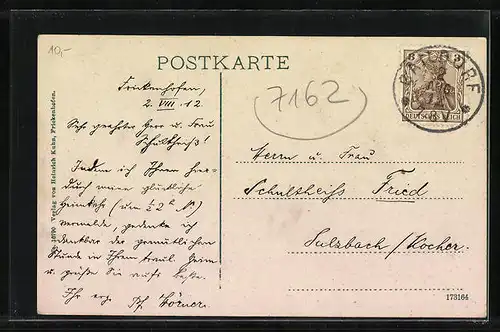 10,-
POSTKARTE
3 3
DEUTSCHES REICH
7162
Frickenhofen,
2. VIII. 12
Sehr geehrter Herr u. Frau
Schultheiß!
Indem ich Ihnen hier-
durch meine glückliche
Heimkehr (um ½ 2 h N.)
vermelde, gedenke ich
dankbar der gemütlichen
Stunde in Ihrem traul. Heim
u. grüße Sie aufs beste.
Ihr erg.
Pf. Hörner.
Herrn u. Frau
Schultheiss Fried
Sulzbach/Kocher.
Verlag von Heinrich Kuhn, Frickenhofen.
173164